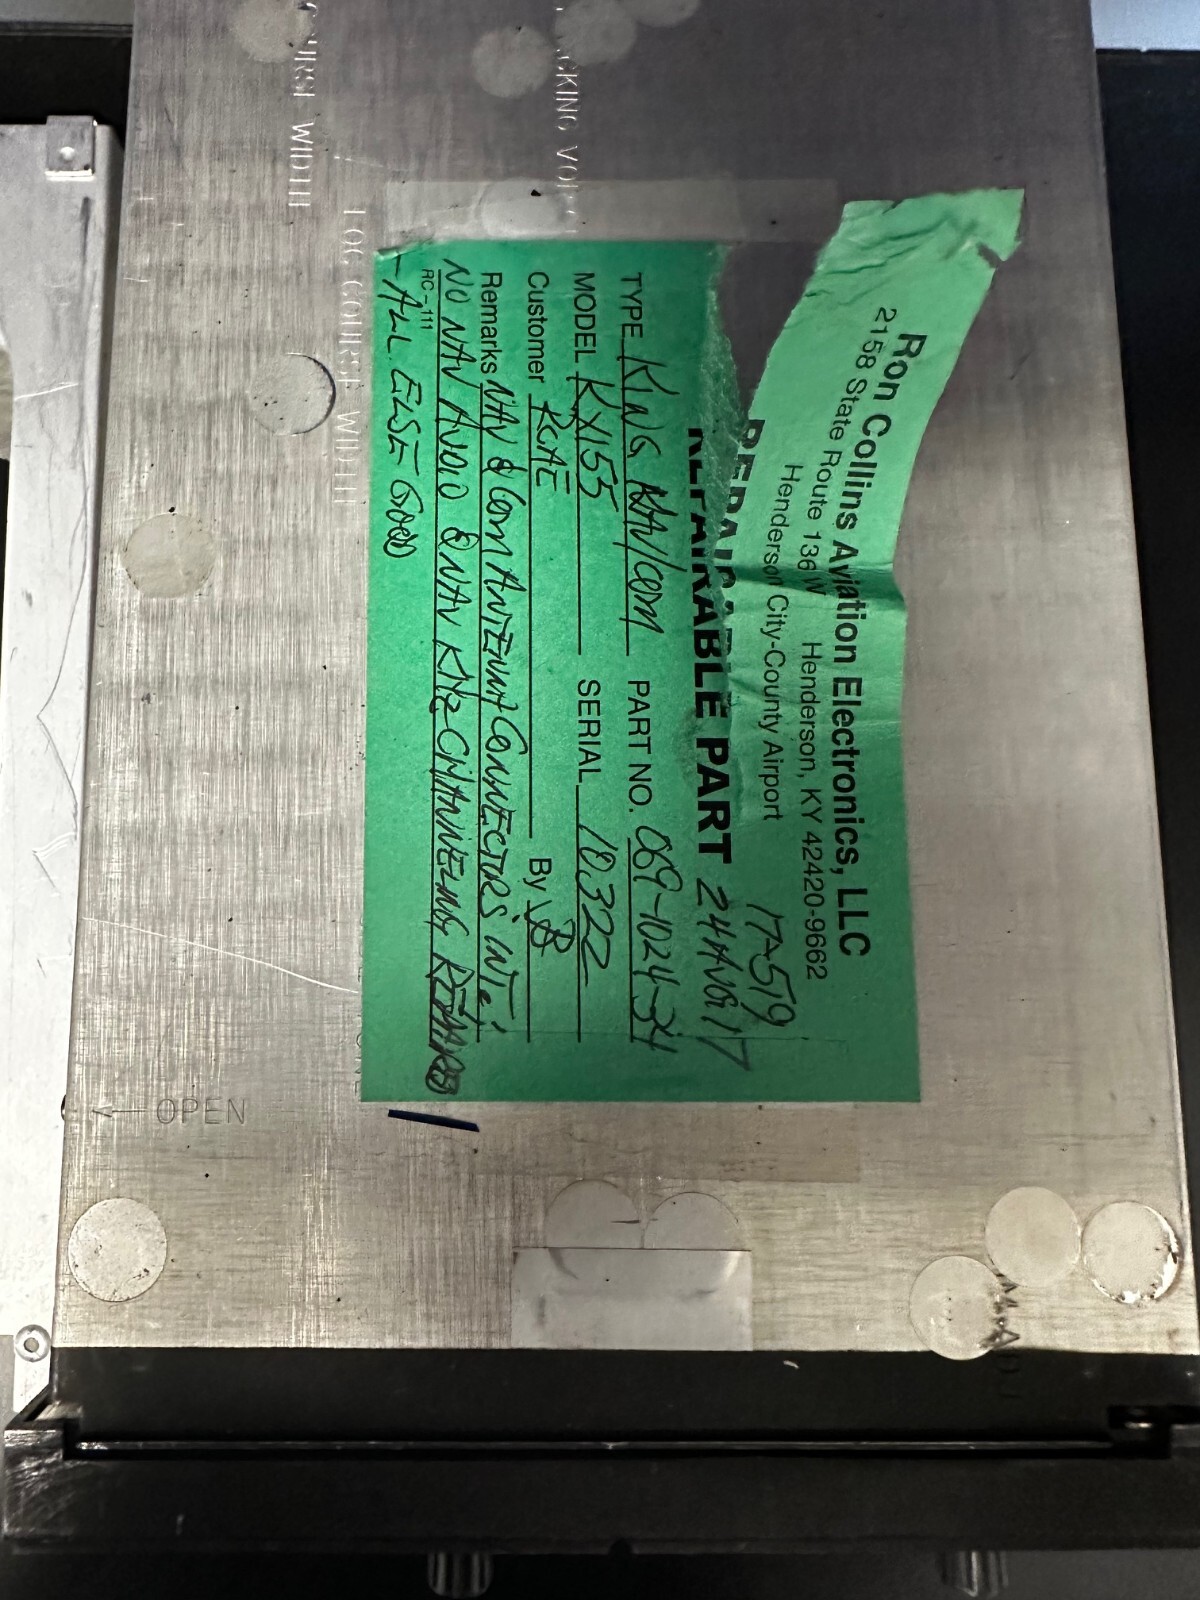 Ron Collins Aviation Electronics, LLC
2158 State Route 136 W Henderson, KY 42420-9662
Henderson City-County Airport
17-519
REPAIRABLE PART 24 AUG 17
TYPE KING NAV/COM PART NO. 069-1024-34
MODEL KX155 SERIAL 10322
Customer RCAE By
Remarks NAV & COM ANTENNA CONNECTORS INT.
NO NAV AUDIO & NAV KHz CHANNELING REPAIRED
RC-111
- ALL ELSE GOOD
COURSE WIDTH
LOC COURSE WIDTH
← OPEN